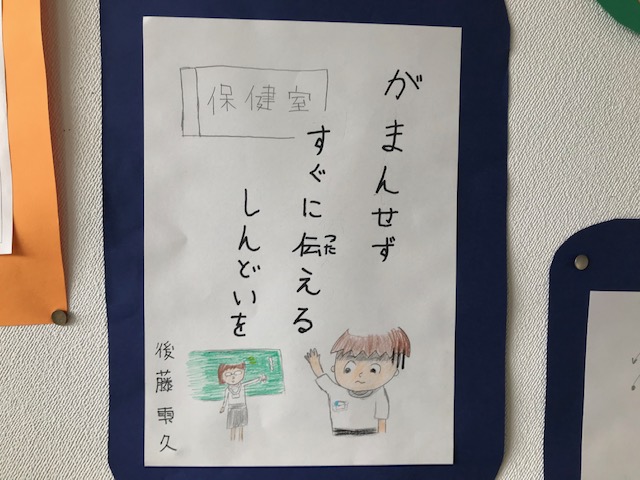 がまんせず
すぐに伝える
つた
しんどいを
保健室
後藤雫久